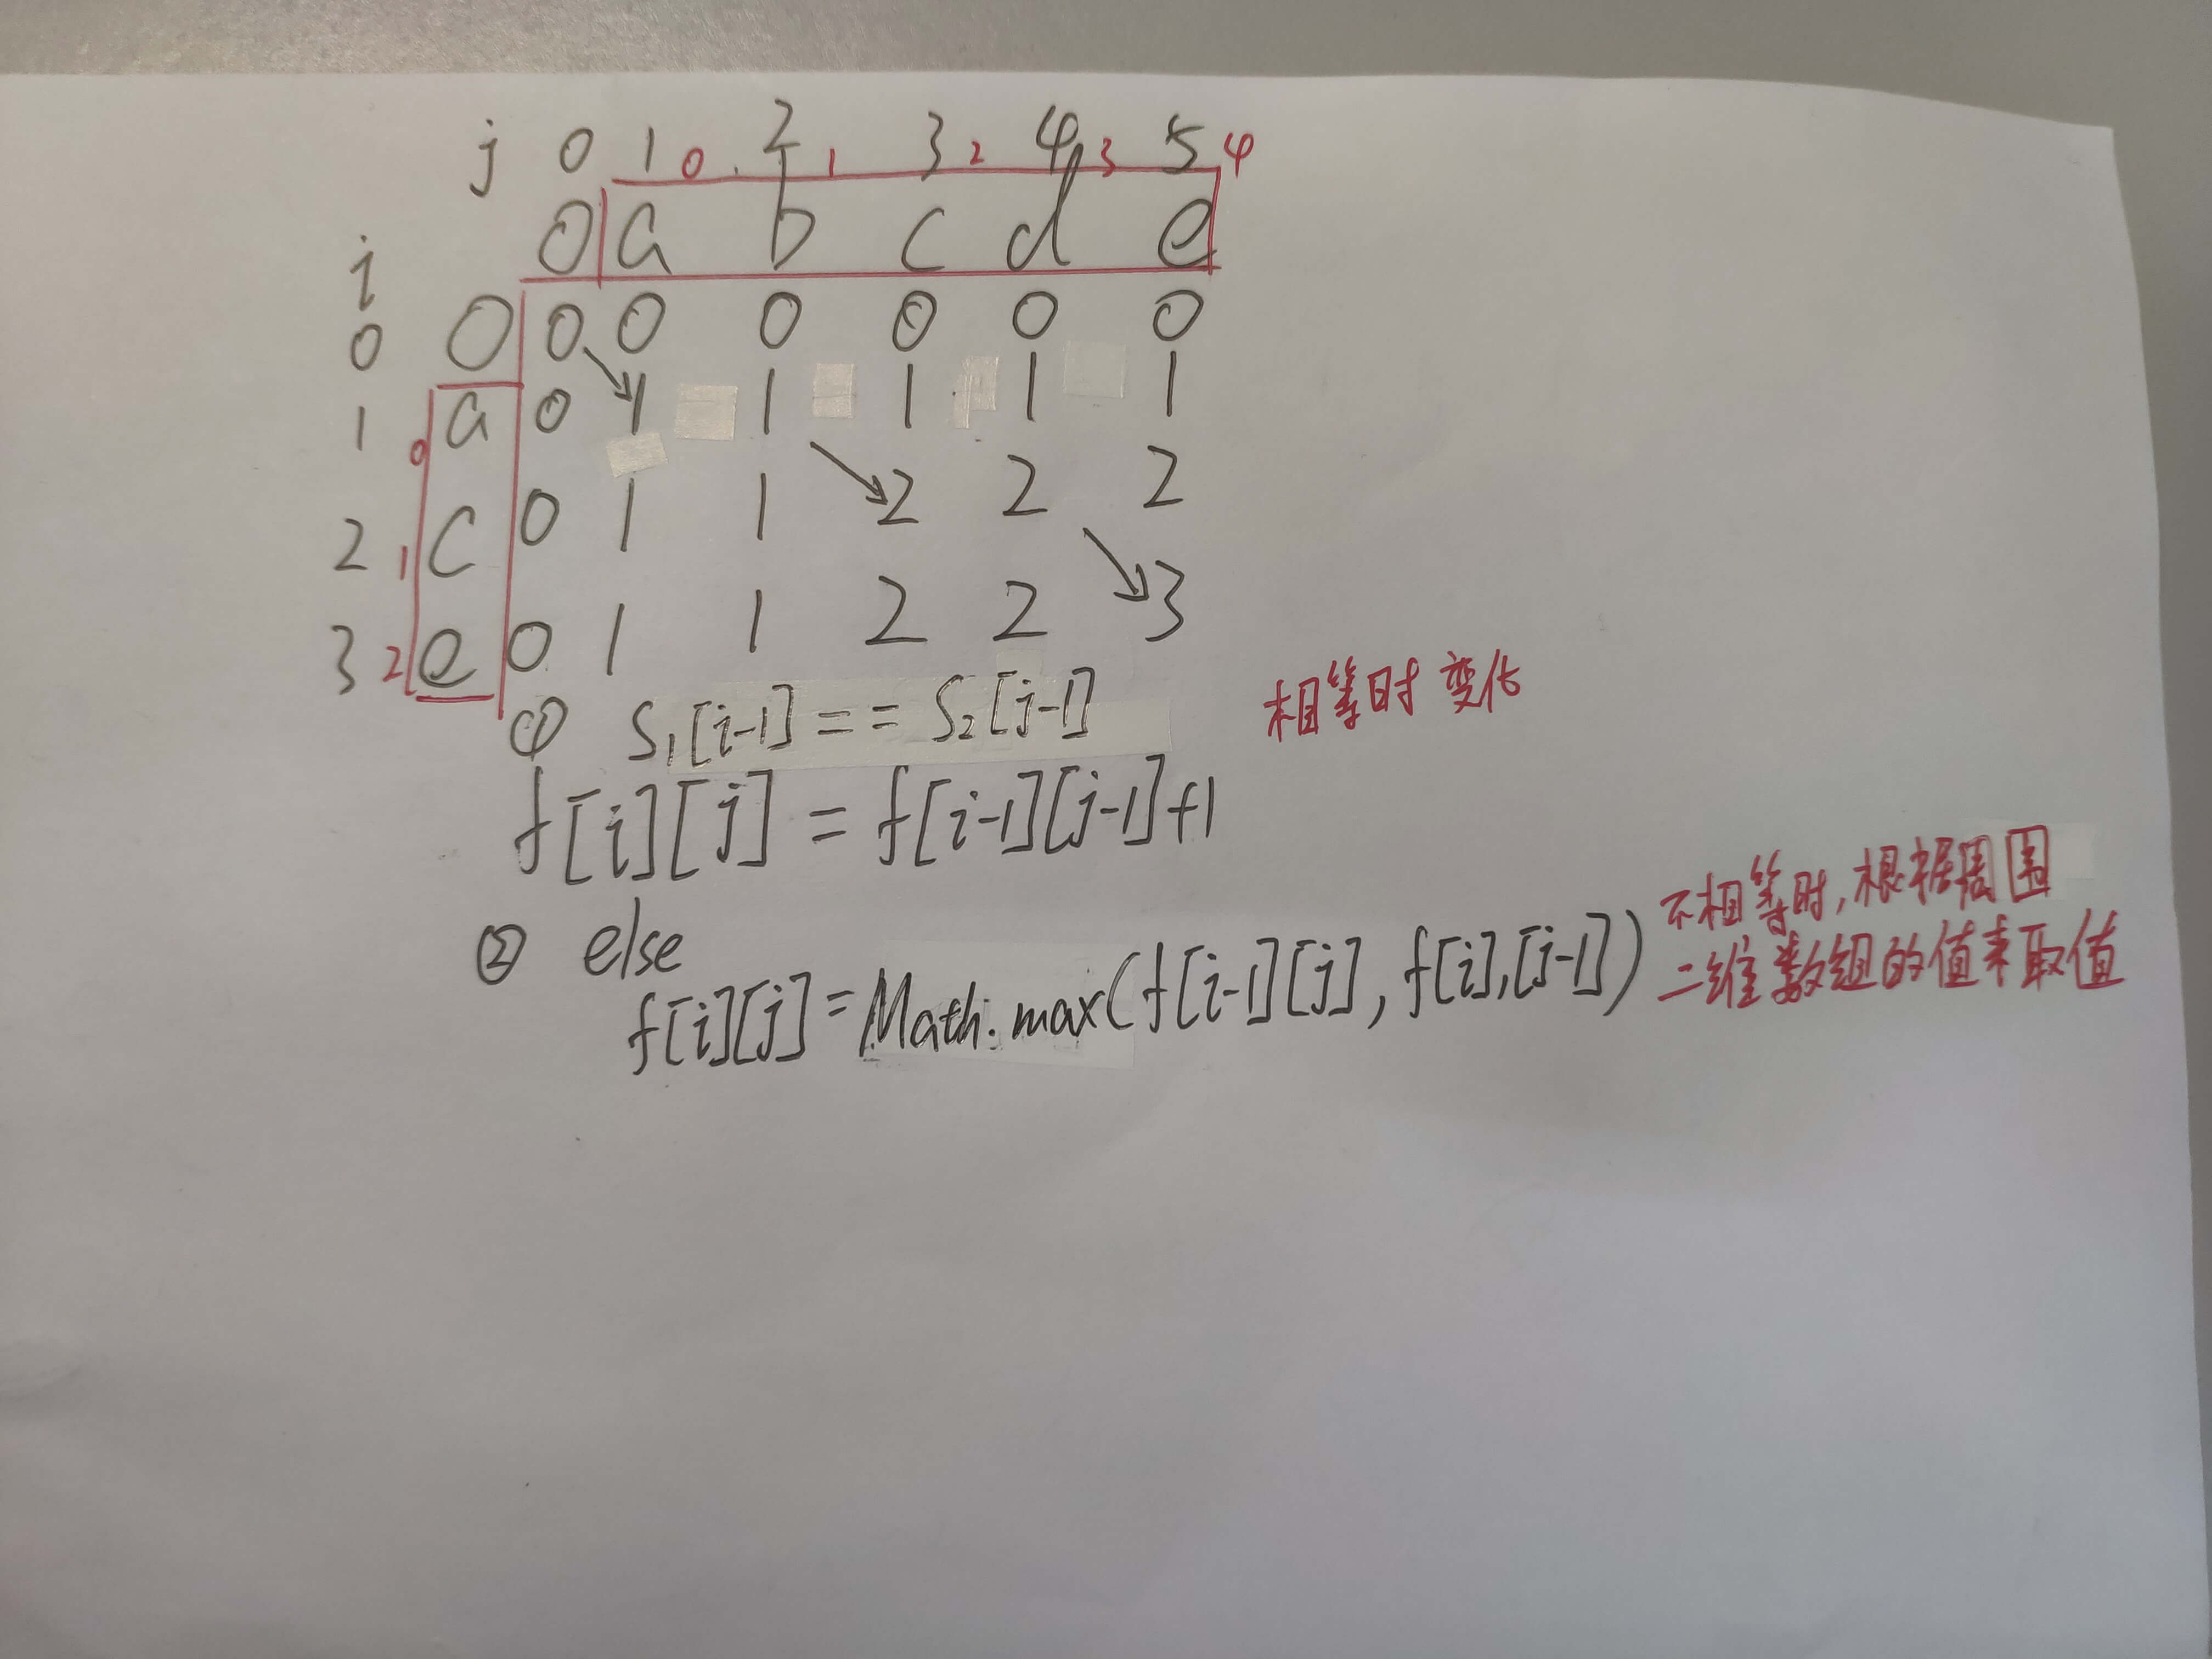 j 0 1 0 2 1 3 2 4 3 5 4
0 a b c d e
i
0 0 0 0 0 0 0 0
1 0 a 0 1 1 1 1 1
2 1 c 0 1 1 2 2 2
3 2 e 0 1 1 2 2 3
① S₁[i-1] == S₂[j-1] 相等时变化
f[i][j] = f[i-1][j-1]+1
② else
不相等时,根据周围
f[i][j]=Math.max(f[i-1][j], f[i],[j-1]) 二维数组的值来取值